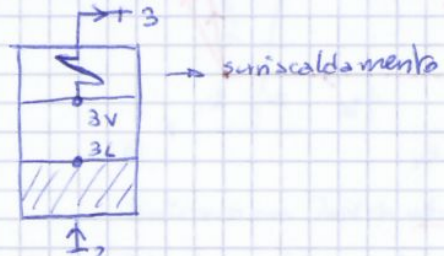 3
→ surriscaldamento
3V
3L
2